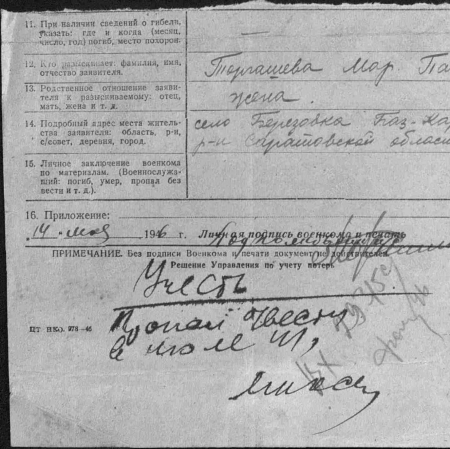 11. При наличии сведений о гибели,
указать: где и когда (месяц,
число, год) погиб, место похорон.
12. Кто разыскивает: фамилия, имя,
отчество заявителя.
Торгашева Мар Па
13. Родственное отношение заяви-
теля к разыскиваемому: отец,
мать, жена и т. д.
жена.
14. Подробный адрес места житель-
ства заявителя: область, р-н,
с/совет, деревня, город.
село Березовка Баз-Кар
р-н Саратовской област
15. Личное заключение военкома
по материалам. (Военнослужа-
щий: погиб, умер, пропал без
вести и т. д.).
16. Приложение:
14 мая 1946 г. Личная подпись военкома и печать
Подполковник
ПРИМЕЧАНИЕ. Без подписи Военкома и печати документ не действителен.
Решение Управления по учету потерь
Учесть
Пропал б/вести
в июле 41,
ПТ НКО. 978—46